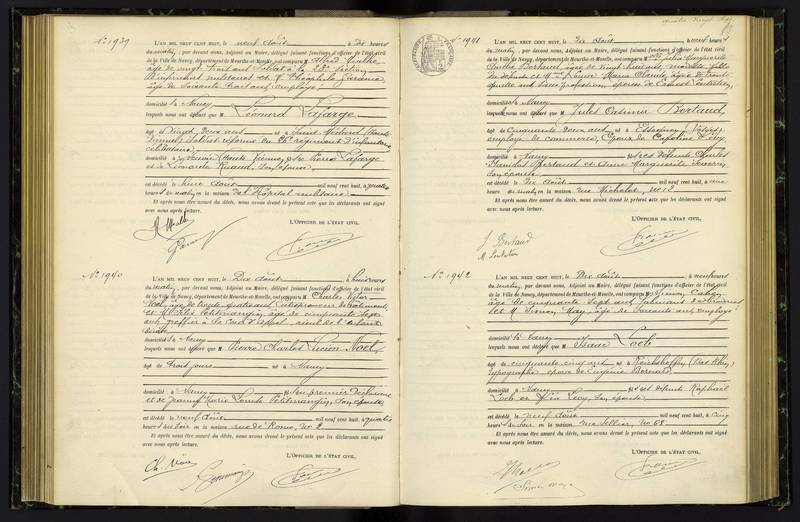 N° 1939
L'AN MIL NEUF CENT HUIT, le neuf Août à dix heures
du matin, par devant nous, Adjoint au Maire, délégué faisant fonctions d'officier de l'état civil
de la Ville de Nancy, département de Meurthe-et-Moselle, ont comparu M. Alfred
âgé de vingt ans, soldat à la 23e Section
d'infirmiers militaires et M. Théophile
âgé de soixante huit ans, employé
domicilié à Nancy
lesquels nous ont déclaré que M. Léonard Lafarge
âgé de vingt deux ans né à Saint (Haute
Vienne), soldat réformé du 26e régiment d'infanterie
célibataire
domicilié à (Haute Vienne), fils de Pierre Lafarge
et de Léonarde son épouse
est décédé le huit Août mil neuf cent huit, à quatre
heures du matin en la maison de l'hôpital militaire
Et après nous être assuré du décès, nous avons dressé le présent acte que les déclarants ont signé
avec nous après lecture.
L'OFFICIER DE L'ÉTAT CIVIL,
N° 1940
L'AN MIL NEUF CENT HUIT, le Dix Août à huit heures
du matin, par devant nous, Adjoint au Maire, délégué faisant fonctions d'officier de l'état civil
de la Ville de Nancy, département de Meurthe-et-Moselle, ont comparu M. Charles Victor
Noël, âgé de trente quatre ans, Entrepreneur de bâtiments,
et M. Petitmangin, âgé de cinquante sept
ans, greffier à la Cour d'Appel, aïeul de l'enfant
domicilié à Nancy
lesquels nous ont déclaré que M. Pierre Charles Lucien Noël
âgé de trois jours né à Nancy
domicilié à Nancy fils du premier déclarant
et de Jeanne Marie Petitmangin, son épouse
est décédé le neuf Août mil neuf cent huit, à quatre
heures du soir en la maison rue de Rome, no 2
Et après nous être assuré du décès, nous avons dressé le présent acte que les déclarants ont signé
avec nous après lecture.
L'OFFICIER DE L'ÉTAT CIVIL,
N° 1941
L'AN MIL NEUF CENT HUIT, le Dix Août à neuf heures
du matin, par devant nous, Adjoint au Maire, délégué faisant fonctions d'officier de l'état civil
de la Ville de Nancy, département de Meurthe-et-Moselle, ont comparu Melle Julia Marguerite
Bertaud, âgée de vingt huit ans, fille
du défunt et Mme Maria Claude, âgée de trente
quatre ans, sans profession, épouse de Ernest
domicilié à Nancy
lesquels nous ont déclaré que M. Jules Casimir Bertaud
âgé de cinquante deux ans né à (Vosges)
employé de commerce, époux de Caroline
domicilié à Nancy fils des défunts Charles
Bertaud et Anne Marguerite
son épouse
est décédé le dix Août mil neuf cent huit, à une
heure du matin en la maison rue Michelet, no 12
Et après nous être assuré du décès, nous avons dressé le présent acte que les déclarants ont signé
avec nous après lecture.
L'OFFICIER DE L'ÉTAT CIVIL,
J Bertaud
N° 1942
L'AN MIL NEUF CENT HUIT, le Dix Août à neuf heures
du matin, par devant nous, Adjoint au Maire, délégué faisant fonctions d'officier de l'état civil
de la Ville de Nancy, département de Meurthe-et-Moselle, ont comparu M.
âgé de cinquante sept ans
et M. Simon May, âgé de soixante ans, employé
domicilié à Nancy
lesquels nous ont déclaré que M. Isaac Loeb
âgé de cinquante cinq ans né à Reichshoffen (Bas Rhin)
typographe, époux de Eugénie Bernard
domicilié à Nancy fils des défunts Raphaël
Loeb et Lévy, son épouse
est décédé le neuf Août mil neuf cent huit, à cinq
heures du soir en la maison rue Sellier, no 68
Et après nous être assuré du décès, nous avons dressé le présent acte que les déclarants ont signé
avec nous après lecture.
L'OFFICIER DE L'ÉTAT CIVIL,
Simon May